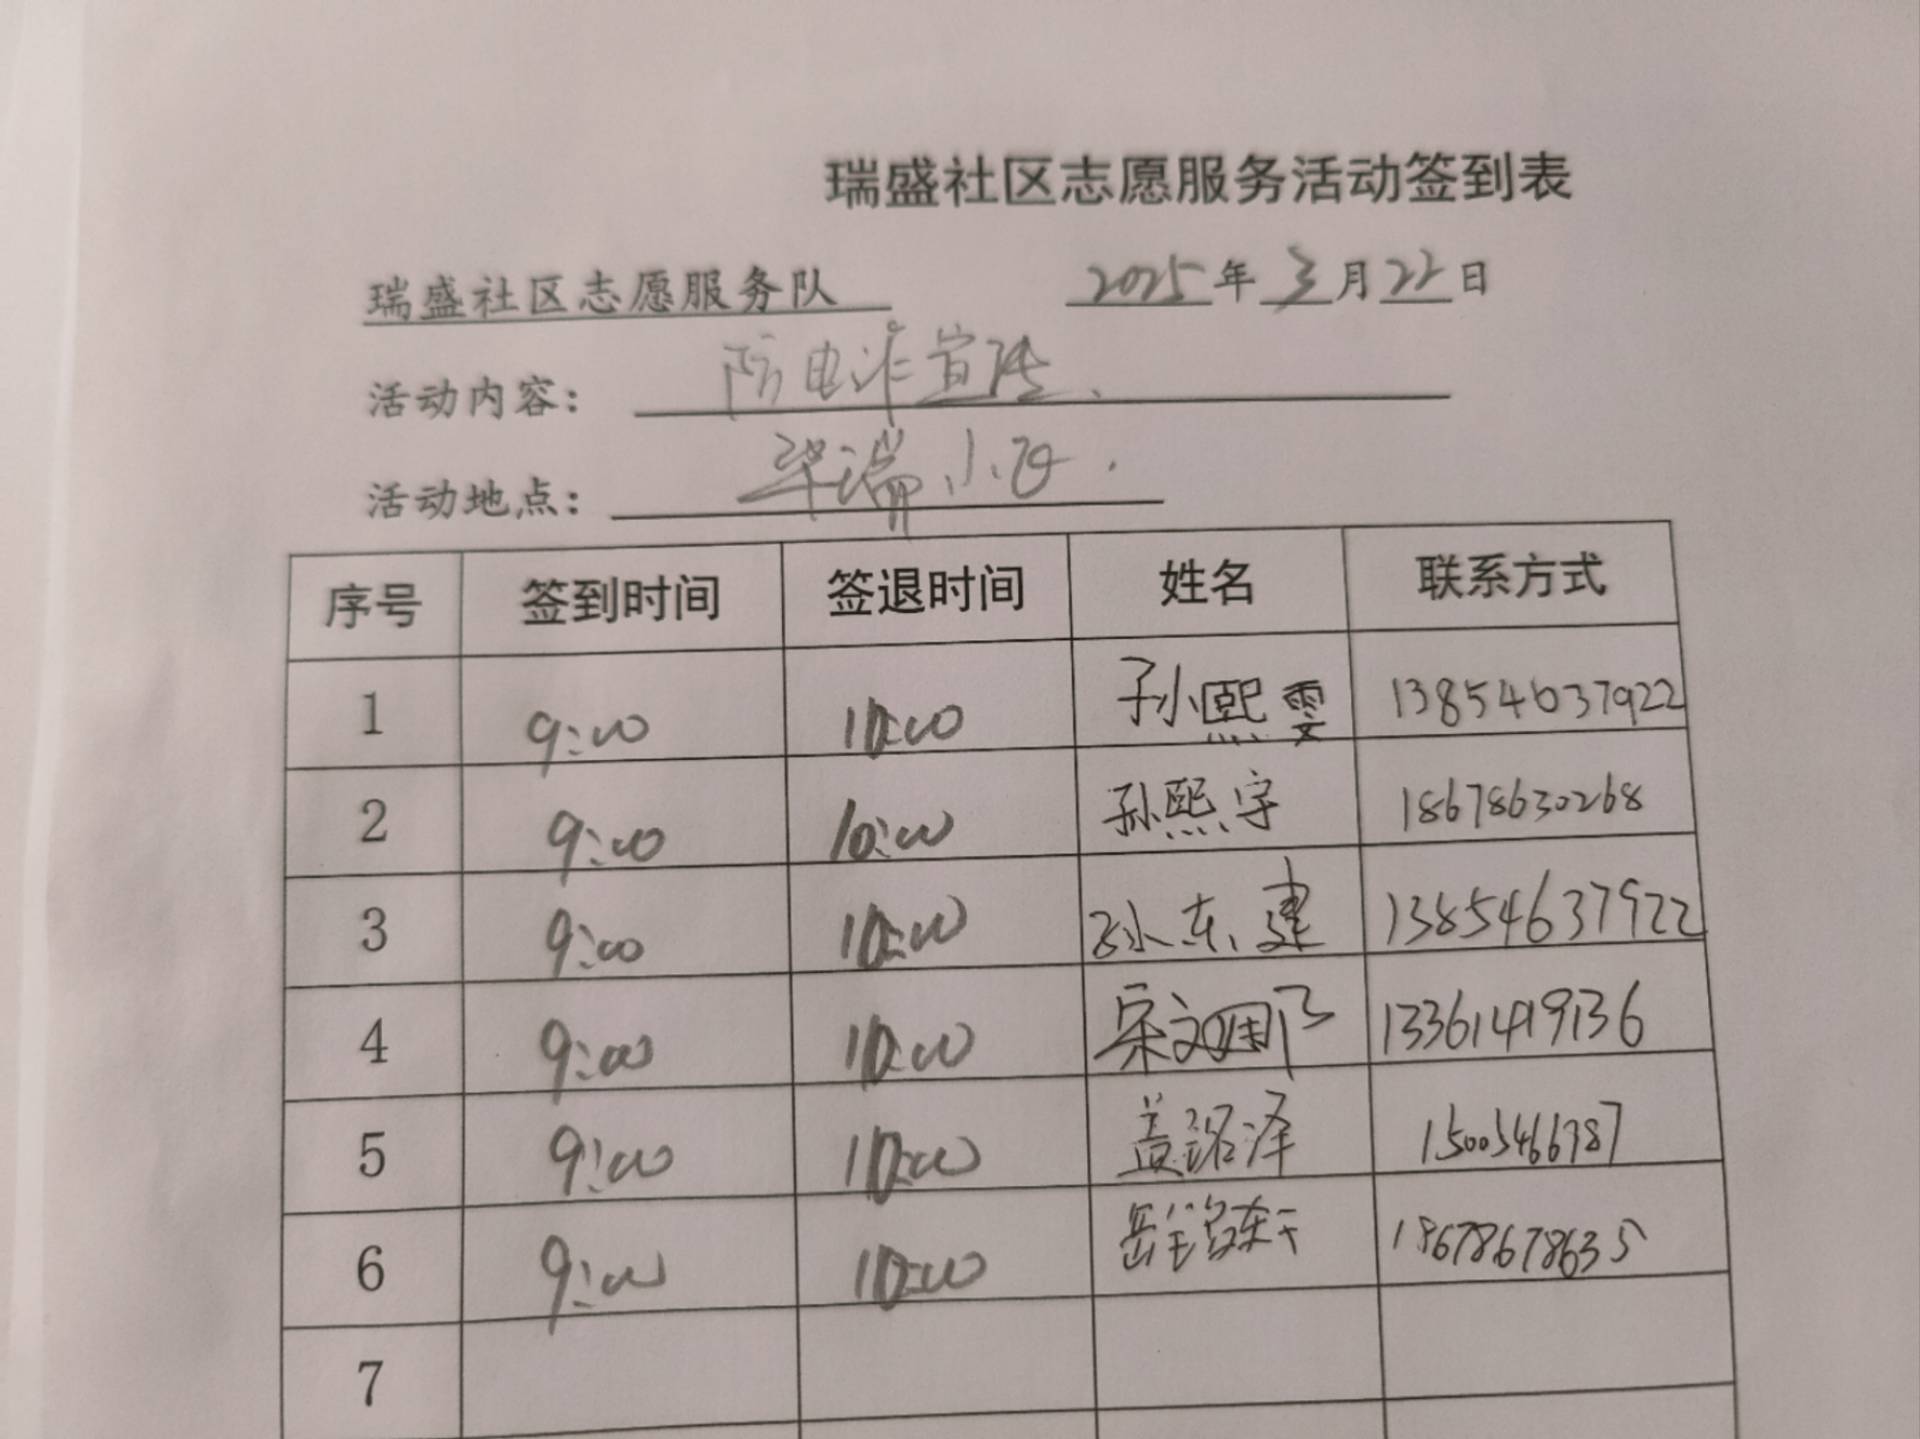 瑞盛社区志愿服务活动签到表
瑞盛社区志愿服务队 2025年3月22日
活动内容： 防电诈宣传.
活动地点： 华瑞小区.
序号 签到时间 签退时间 姓名 联系方式
1 9:00 10:00 孙熙雯 13854637922
2 9:00 10:00 孙熙宇 18678630268
3 9:00 10:00 孙东建 13854637922
4 9:00 10:00 13361419136
5 9:00 10:00 盖铭泽 15005466787
6 9:00 10:00 18678678635
7